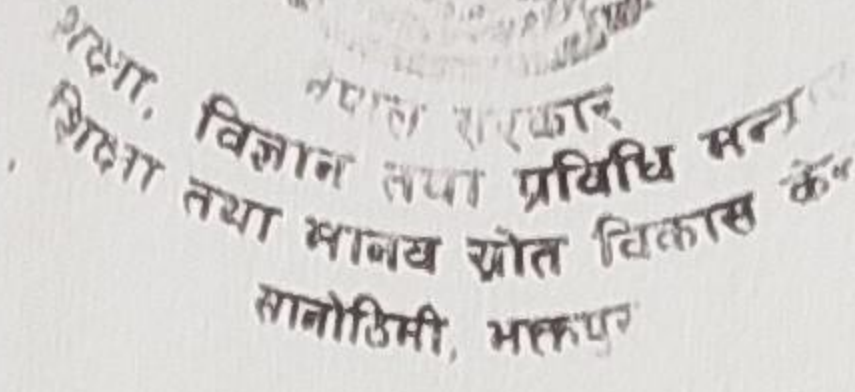 नेपाल सरकार
शिक्षा, विज्ञान तथा प्रविधि मन्त्रा
शिक्षा तथा मानव स्रोत विकास केन्
सानोठिमी, भक्तपुर